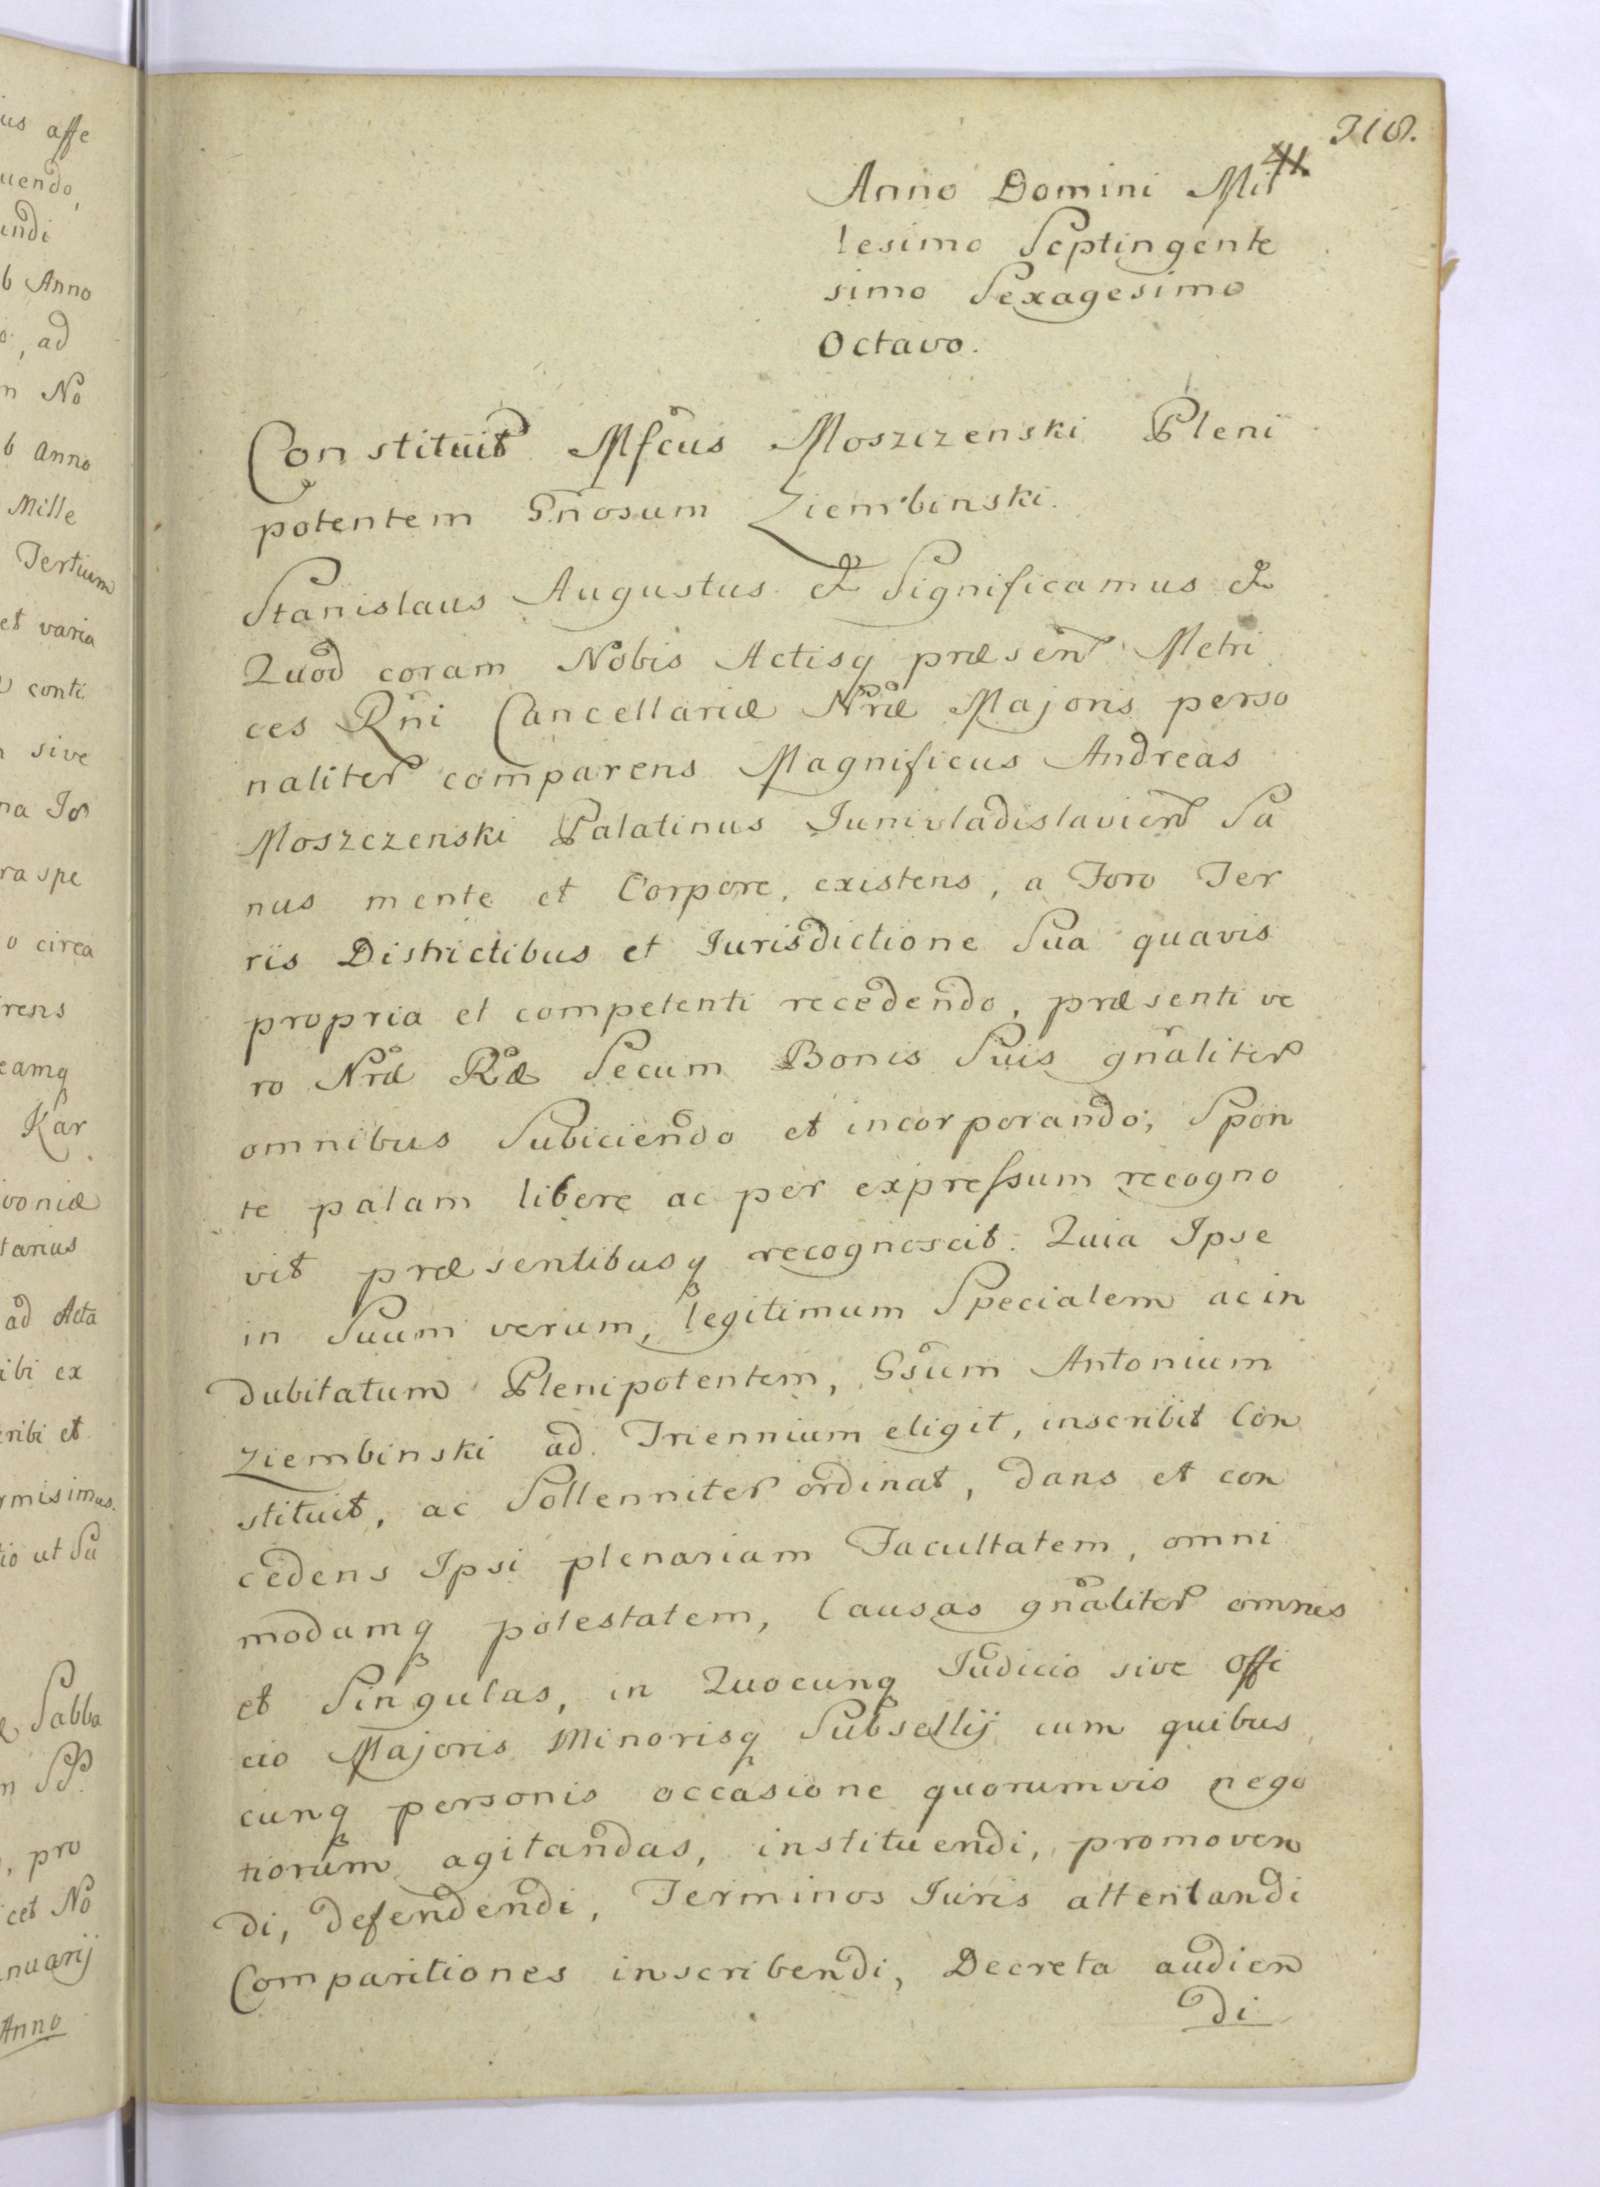 us affe
uendo,
endi
b Anno
o, ad
n No
b Anno
Mille
Tertium
et varia
conti
sive
na Jos
ra spe
o circa
rens
eamq
Kar
voniæ
tarius
ad Acta
ibi ex
cribi et
rmisimus.
io ut Su
Sabba
n SP.
, pro
cet No
nuarij
Anno
318.
41.
Anno Domini Mil
lesimo Septingente
simo Sexagesimo
Octavo.
Constituit Mfcus Moszczenski Pleni
potentem Gnosum Ziembinski.
Stanislaus Augustus & Significamus &
Quod coram Nobis Actisq præsen Metri
ces Rni Cancellariæ Nræ Majoris perso
naliter comparens Magnificus Andreas
Moszczenski Palatinus Junivladislavien Sa
nus mente et Corpore, existens, a Foro Ter
ris Districtibus et Jurisdictione Sua quavis
propria et competenti recedendo, præsenti ve
ro Nræ Ræ Secum Bonis Suis gnaliter
omnibus Subiciendo et incorporando; Spon
te palam libere ac per expressum recogno
vit præsentibusq recognoscit: Quia Ipse
in Suum verum, legitimum Specialem ac in
dubitatum Plenipotentem, Gsum Antonium
Ziembinski ad Triennium eligit, inscribit Con
stituit, ac Sollenniter ordinat, dans et con
cedens Ipsi plenariam Facultatem, omni
modamq potestatem, Causas gnaliter omnes
et Singulas, in Quocunq Judicio sive Offi
cio Majoris Minorisq Subsellij cum quibus
cunq personis occasione quorumvis nego
tiorum agitandas, instituendi, promoven
di, defendendi, Terminos Juris attentandi
Comparitiones inscribendi, Decreta audien
di